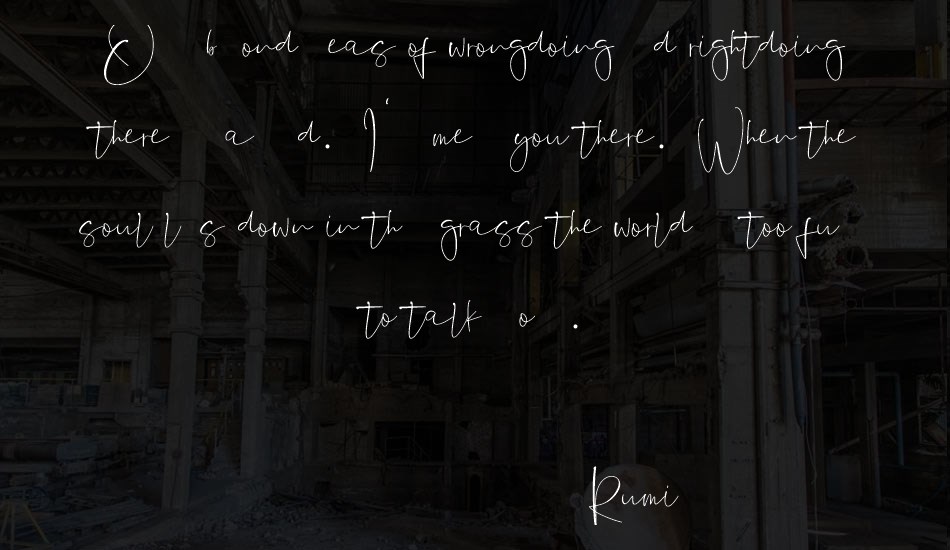 O b ond eas of wrongdoing d rightdoing
there a d. I' me you there. When the
soul l s down in th grass the world too fu
to talk o .
Rumi